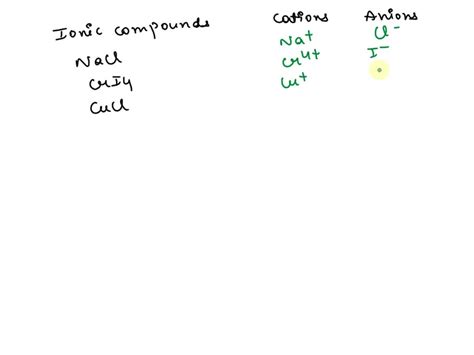 Ionic compounds Cations Anions
NaCl Na⁺ Cl⁻
CrI4 Cr⁴⁺ I⁻
CuCl Cu⁺